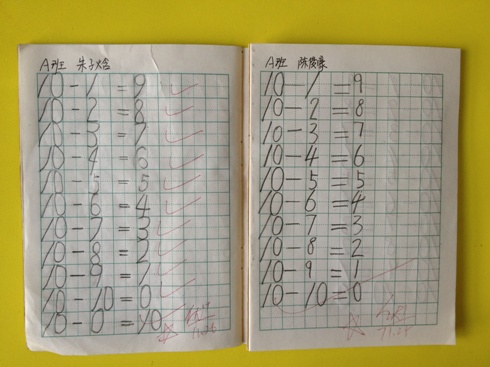 A班 朱子焓
10-1=9
10-2=8
10-3=7
10-4=6
10-5=5
10-6=4
10-7=3
10-8=2
10-9=1
10-10=0
10-0=10
A班
10-1=9
10-2=8
10-3=7
10-4=6
10-5=5
10-6=4
10-7=3
10-8=2
10-9=1
10-10=0